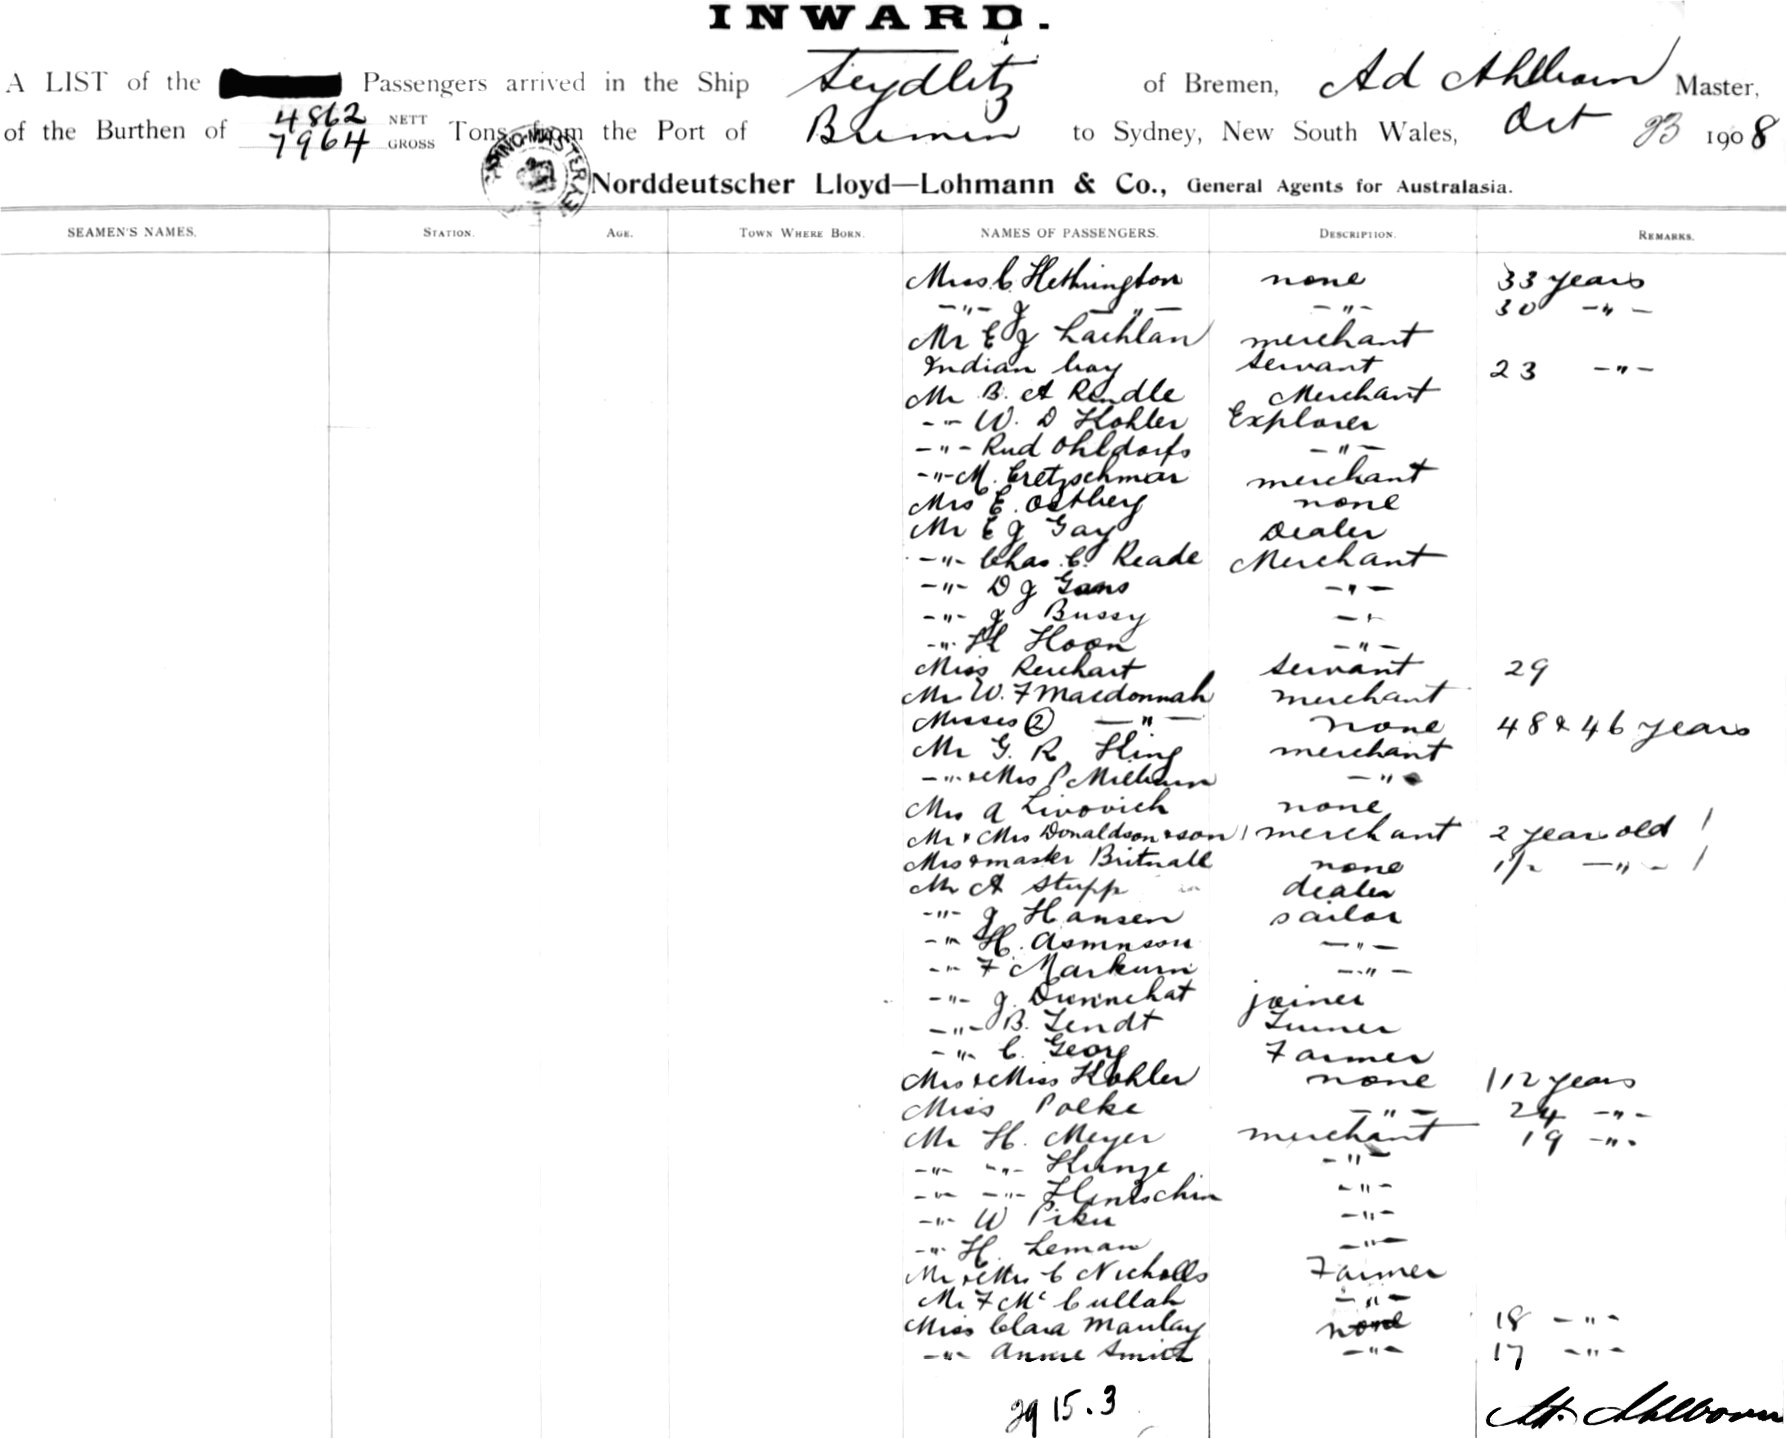 INWARD.
A LIST of the Passengers arrived in the Ship Seydlitz of Bremen, Ad Ahlborn Master,
of the Burthen of 4862 NETT 7964 GROSS Tons from the Port of Bremen to Sydney, New South Wales, Oct 23 1908
Norddeutscher Lloyd—Lohmann & Co., General Agents for Australasia.
SEAMEN'S NAMES. STATION. AGE. TOWN WHERE BORN. NAMES OF PASSENGERS. DESCRIPTION. REMARKS.
Miss C. Hethrington none 33 years
-"- J -"- -"- 30 -"-
Mr E J Lachlan merchant
Indian boy servant 23 -"-
Mr B. A Rendle Merchant
-"- W. D Kohler Explorer
-"- Rud Ohldorfs -"-
-"- M. Cretzschmar merchant
Mrs E. Ostberg none
Mr E J Gay Dealer
-"- Chas. C. Reade Merchant
-"- D J Gans -"-
-"- J Bussy -"-
-"- H Hoon -"-
Miss Reichart servant 29
Mr W. F Macdonnah merchant
Misses 2 -"- none 48 & 46 years
Mr G. R King merchant
-"- & Mrs P Milburn -"-
Mrs A Livovich none
Mr & Mrs Donaldson & son 1 merchant 2 years old /
Mrs & master Britnall none 1½ -"- /
Mr A Stupp dealer
-"- J Hansen sailor
-"- H. Asmnson -"-
-"- F Markum -"-
-"- J. Dunnehat joiner
-"- B. Lendt Turner
-"- C. Georg Farmer
Mrs & Miss Kohler none 1 12 years
Miss Poelke -"- 24 -"-
Mr H. Meyer merchant 19 -"-
-"- -"- Kunze -"-
-"- -"- -"-
-"- W -"-
-"- H. Leman -"-
Mr & Mrs C Nicholls Farmer
Mr F McCullah -"-
Miss Clara Manlay none 18 -"-
-"- Annie Smith -"- 17 -"-
29 15.3 Ad. Ahlborn